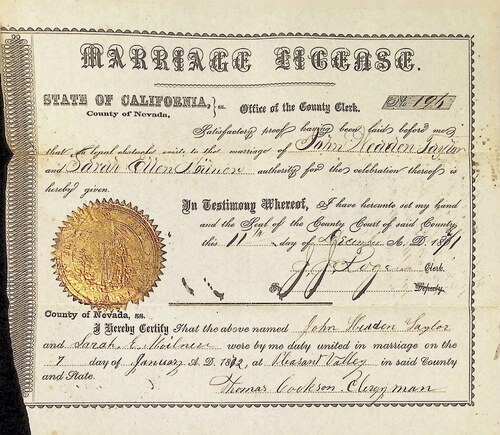 MARRIAGE LICENSE.
STATE OF CALIFORNIA, } ss.
County of Nevada,
Office of the County Clerk.
No. 195
Satisfactory proof having been laid before me
that no legal obstacle exists to the marriage of John Headen Taylor
and Sarah Ellen authority for the celebration thereof is
hereby given.
In Testimony Whereof, I have hereunto set my hand
and the Seal of the County Court of said County
this 11th day of December A. D. 1871
J. J. Clerk.
By Deputy.
County of Nevada, ss.
I Hereby Certify That the above named John Headen Taylor
and Sarah E. were by me duly united in marriage on the
7 day of January A. D. 1872, at Pleasant Valley in said County
and State.
Thomas Cookson. Clergyman